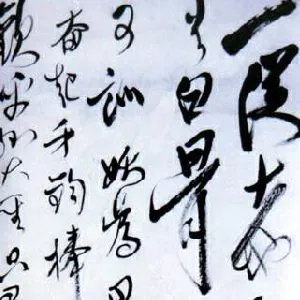 一從大地
生白骨
可訓妖為
奮起千鈞棒
歡呼孙大圣只